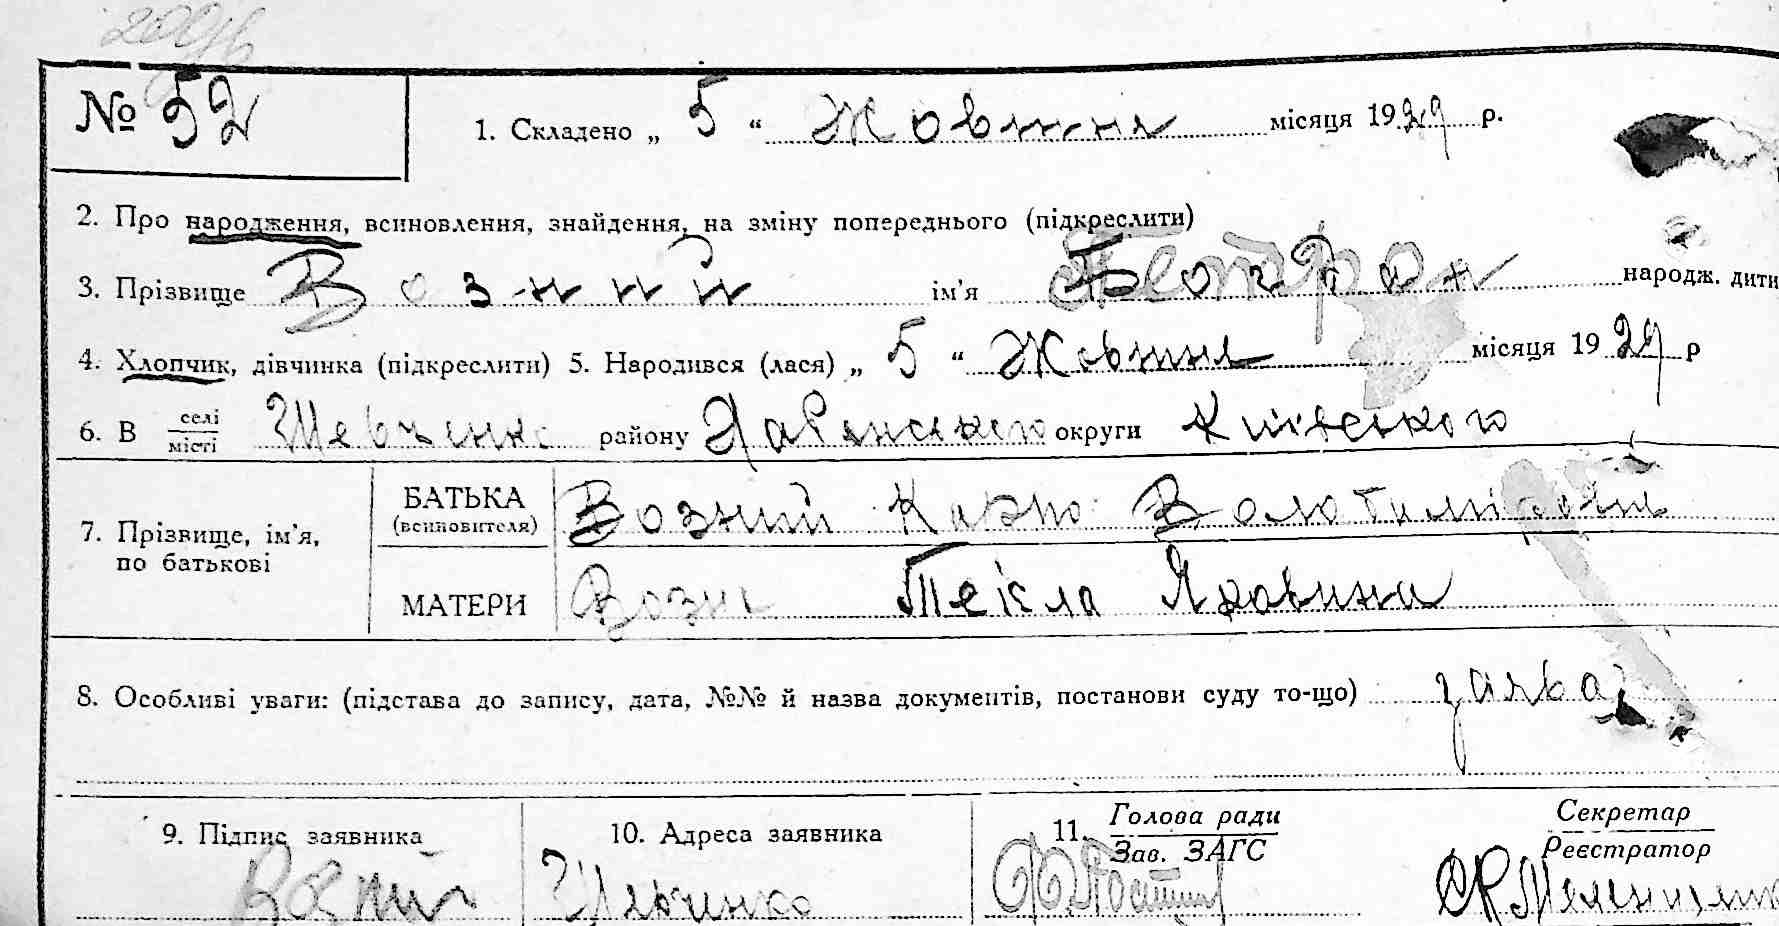 № 52
1. Складено „ 5 “ Жовтня місяця 1929 р.
2. Про народження, всиновлення, знайдення, на зміну попереднього (підкреслити)
3. Прізвище Возний ім'я народж. дити
4. Хлопчик, дівчинка (підкреслити) 5. Народився (лася) „ 5 “ Жовтня місяця 1929 р
6. В селі місті Шевченко району округи Київського
7. Прізвище, ім'я, по батькові
БАТЬКА (всиновителя) Возний
МАТЕРИ Текла
8. Особливі уваги: (підстава до запису, дата, №№ й назва документів, постанови суду то-що) заява
9. Підпис заявника 10. Адреса заявника 11. Голова ради Секретар
Зав. ЗАГС Реєстратор
Возний Шевченко